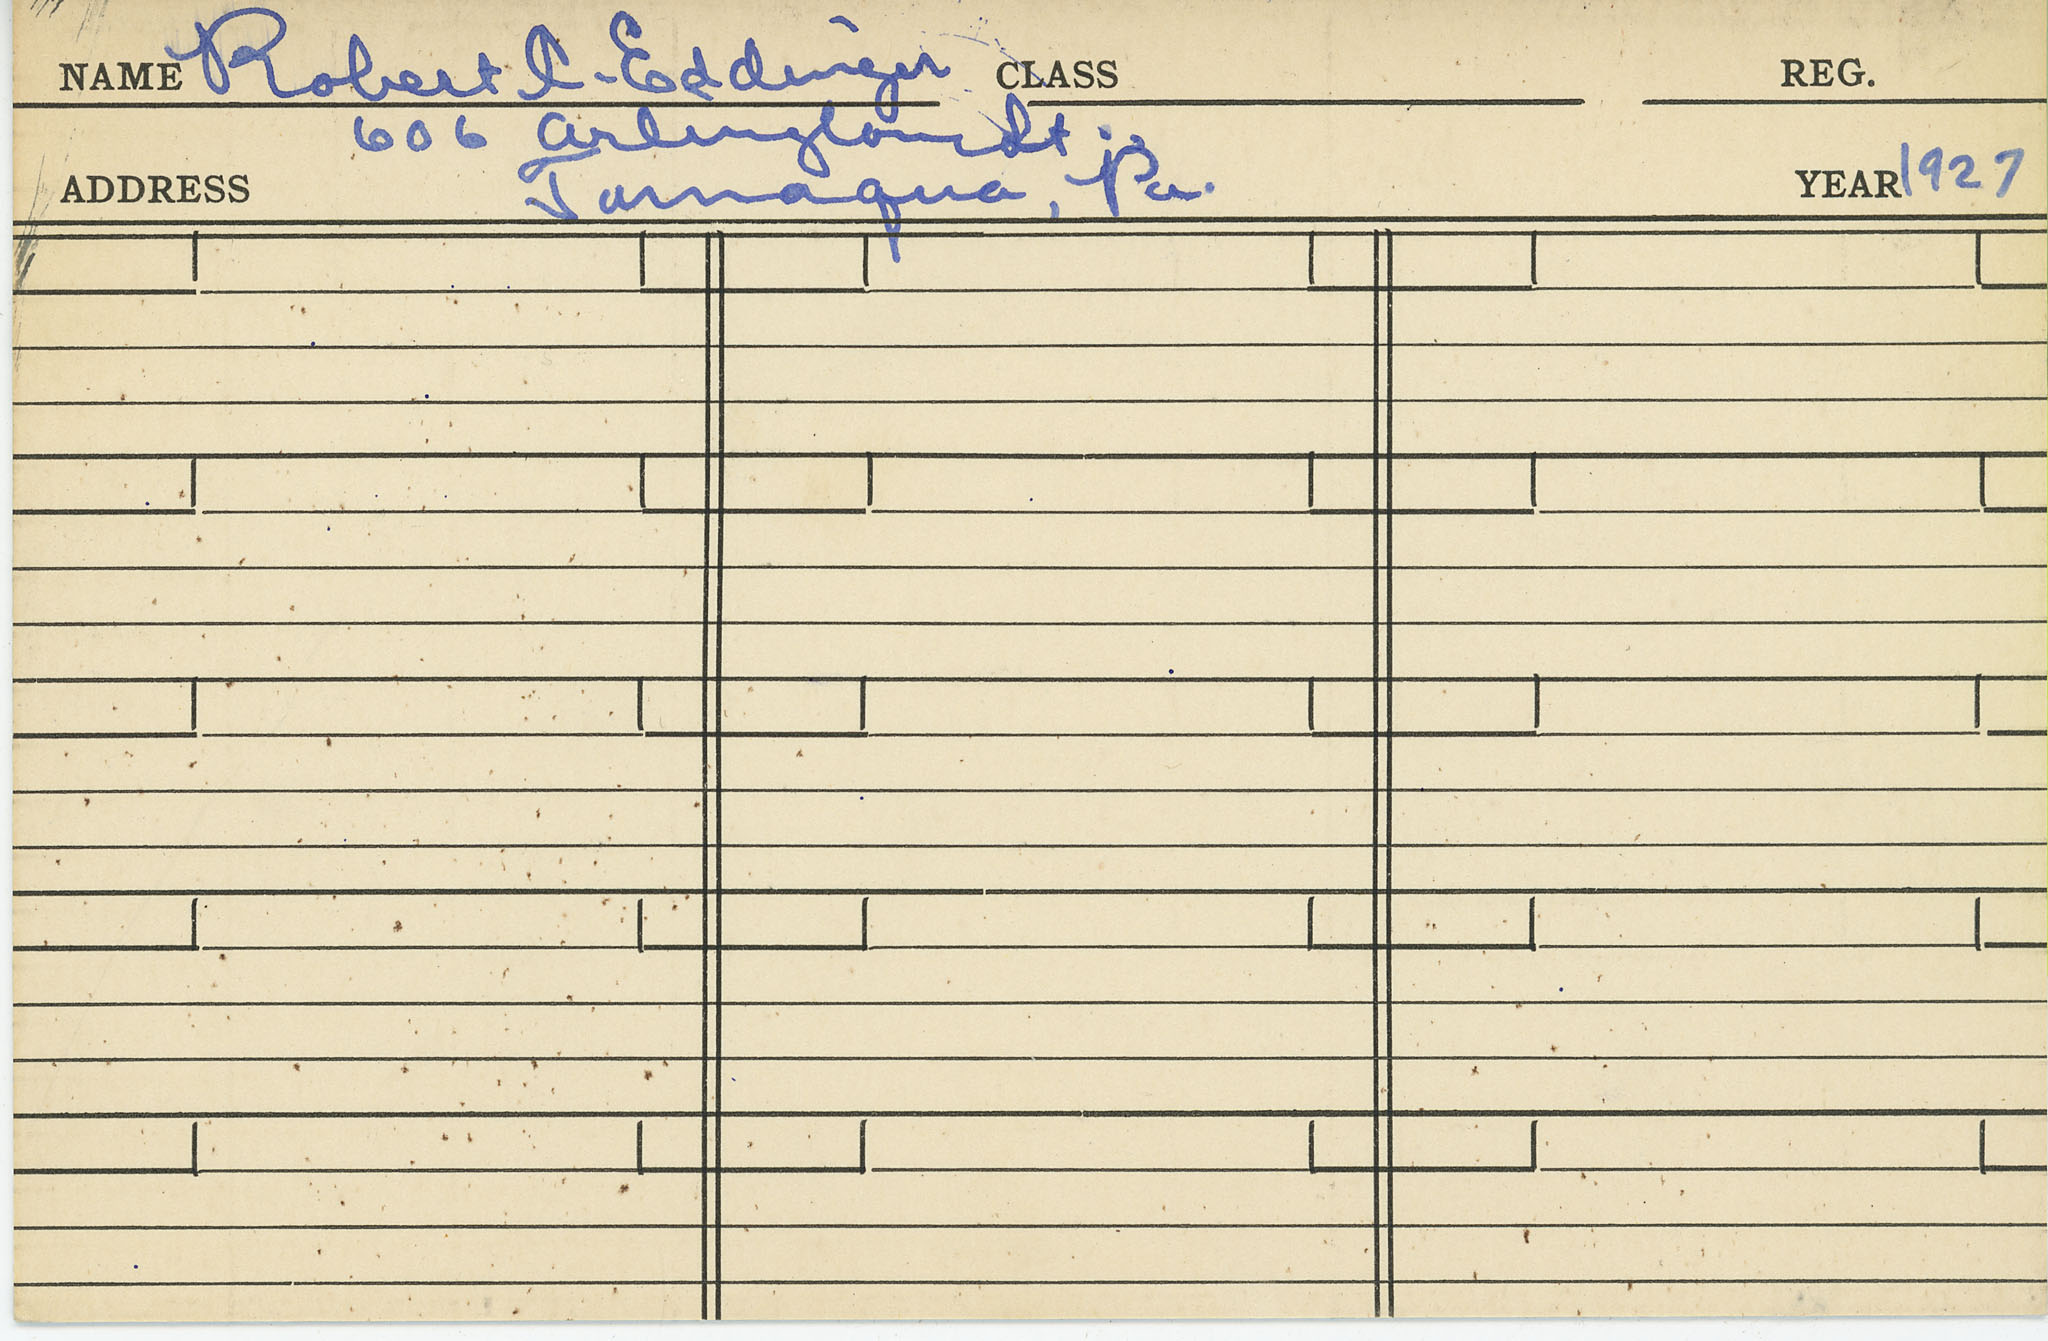 NAME Robert C. Eddinger CLASS REG.
606 Arlington St.
ADDRESS Tamaqua, Pa. YEAR 1927